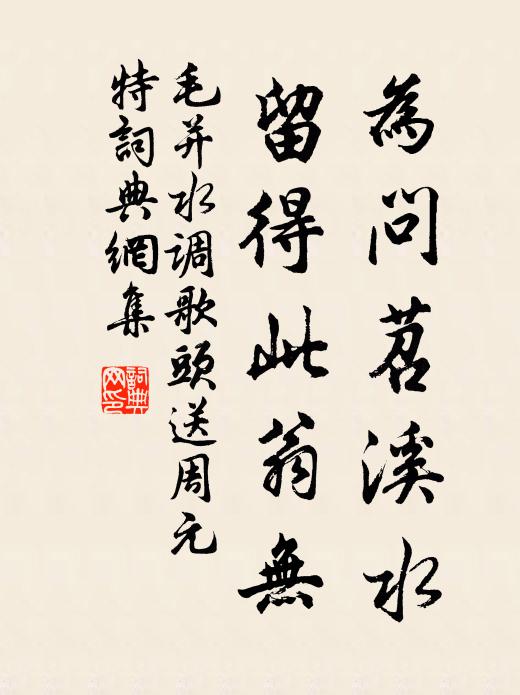 為問苕溪水
留得此翁無
毛并水调歌頭送周元
特詞典網集
詞典
网印